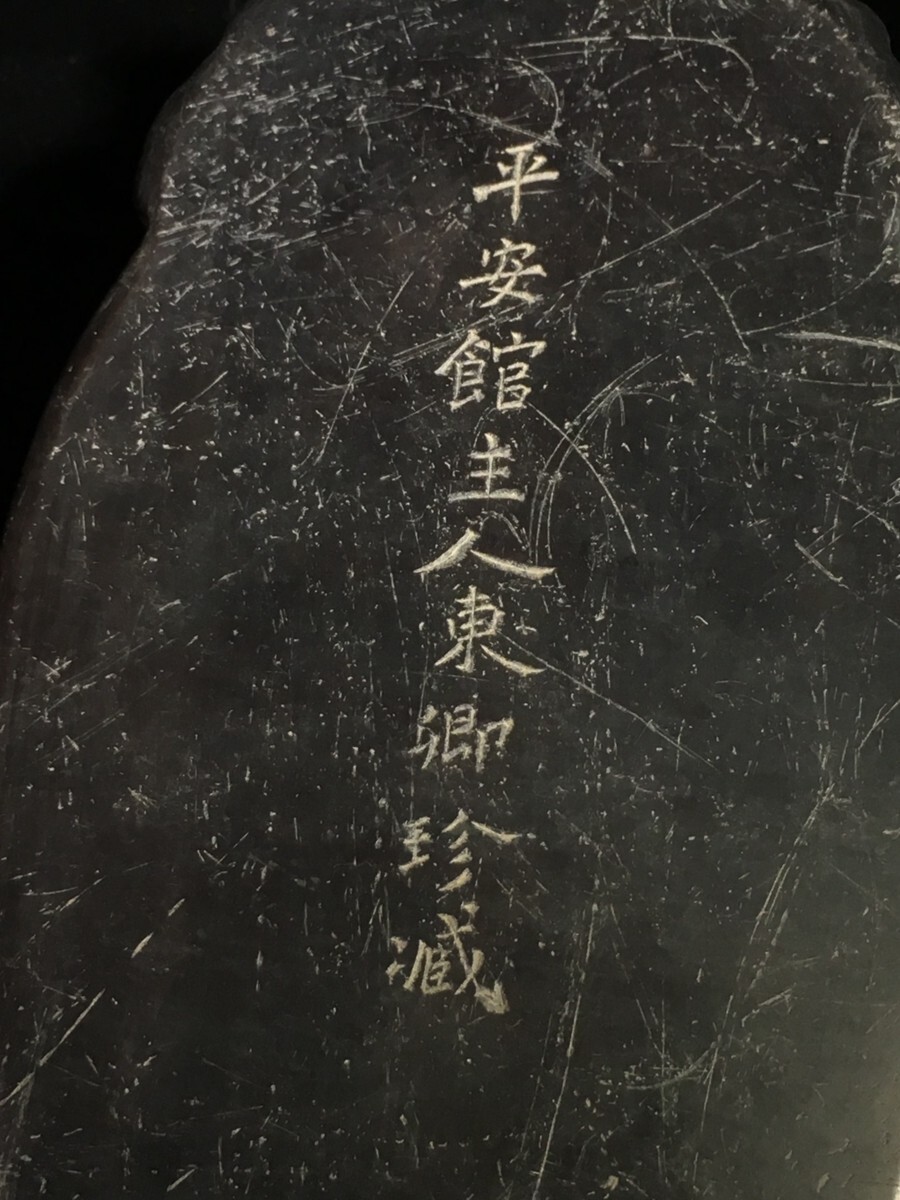 平安館主人東卿珍藏